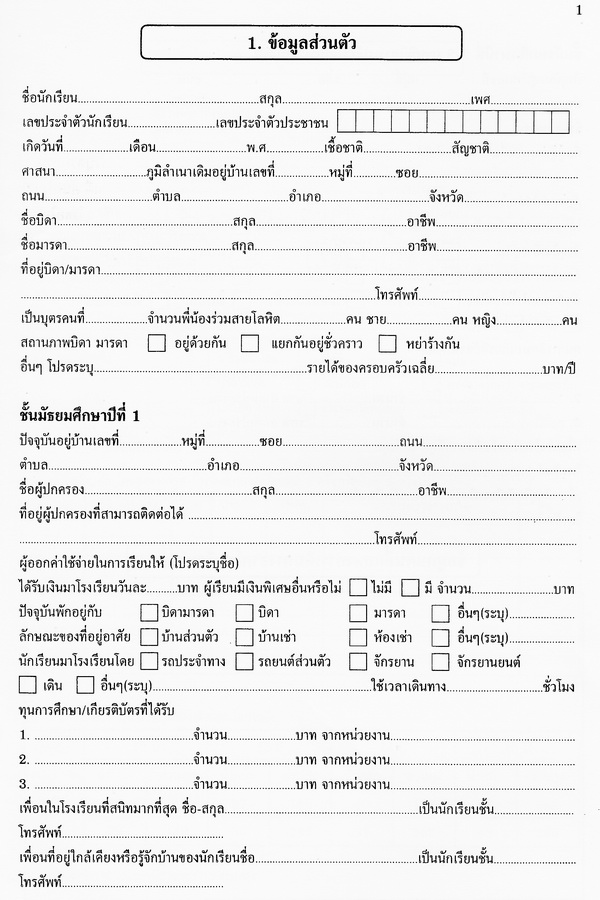 1
1. ข้อมูลส่วนตัว
ชื่อนักเรียน....................สกุล....................เพศ....................
เลขประจำตัวนักเรียน....................เลขประจำตัวประชาชน
เกิดวันที่....................เดือน....................พ.ศ.....................เชื้อชาติ....................สัญชาติ....................
ศาสนา....................ภูมิลำเนาเดิมอยู่บ้านเลขที่....................หมู่ที่....................ซอย....................
ถนน....................ตำบล....................อำเภอ....................จังหวัด....................
ชื่อบิดา....................สกุล....................อาชีพ....................
ชื่อมารดา....................สกุล....................อาชีพ....................
ที่อยู่บิดา/มารดา....................
....................โทรศัพท์....................
เป็นบุตรคนที่....................จำนวนพี่น้องร่วมสายโลหิต....................คน ชาย....................คน หญิง....................คน
สถานภาพบิดา มารดา □ อยู่ด้วยกัน □ แยกกันอยู่ชั่วคราว □ หย่าร้างกัน
อื่นๆ โปรดระบุ....................รายได้ของครอบครัวเฉลี่ย....................บาท/ปี
ชั้นมัธยมศึกษาปีที่ 1
ปัจจุบันอยู่บ้านเลขที่....................หมู่ที่....................ซอย....................ถนน....................
ตำบล....................อำเภอ....................จังหวัด....................
ชื่อผู้ปกครอง....................สกุล....................อาชีพ....................
ที่อยู่ผู้ปกครองที่สามารถติดต่อได้ ....................
....................โทรศัพท์....................
ผู้ออกค่าใช้จ่ายในการเรียนให้ (โปรดระบุชื่อ)
ได้รับเงินมาโรงเรียนวันละ..........บาท ผู้เรียนมีเงินพิเศษอื่นหรือไม่ □ ไม่มี □ มี จำนวน....................บาท
ปัจจุบันพักอยู่กับ □ บิดามารดา □ บิดา □ มารดา □ อื่นๆ(ระบุ)....................
ลักษณะของที่อยู่อาศัย □ บ้านส่วนตัว □ บ้านเช่า □ ห้องเช่า □ อื่นๆ(ระบุ)....................
นักเรียนมาโรงเรียนโดย □ รถประจำทาง □ รถยนต์ส่วนตัว □ จักรยาน □ จักรยานยนต์
□ เดิน □ อื่นๆ(ระบุ)....................ใช้เวลาเดินทาง....................ชั่วโมง
ทุนการศึกษา/เกียรติบัตรที่ได้รับ
1. ....................จำนวน....................บาท จากหน่วยงาน....................
2. ....................จำนวน....................บาท จากหน่วยงาน....................
3. ....................จำนวน....................บาท จากหน่วยงาน....................
เพื่อนในโรงเรียนที่สนิทมากที่สุด ชื่อ-สกุล....................เป็นนักเรียนชั้น....................
โทรศัพท์....................
เพื่อนที่อยู่ใกล้เคียงหรือรู้จักบ้านของนักเรียนชื่อ....................เป็นนักเรียนชั้น....................
โทรศัพท์....................